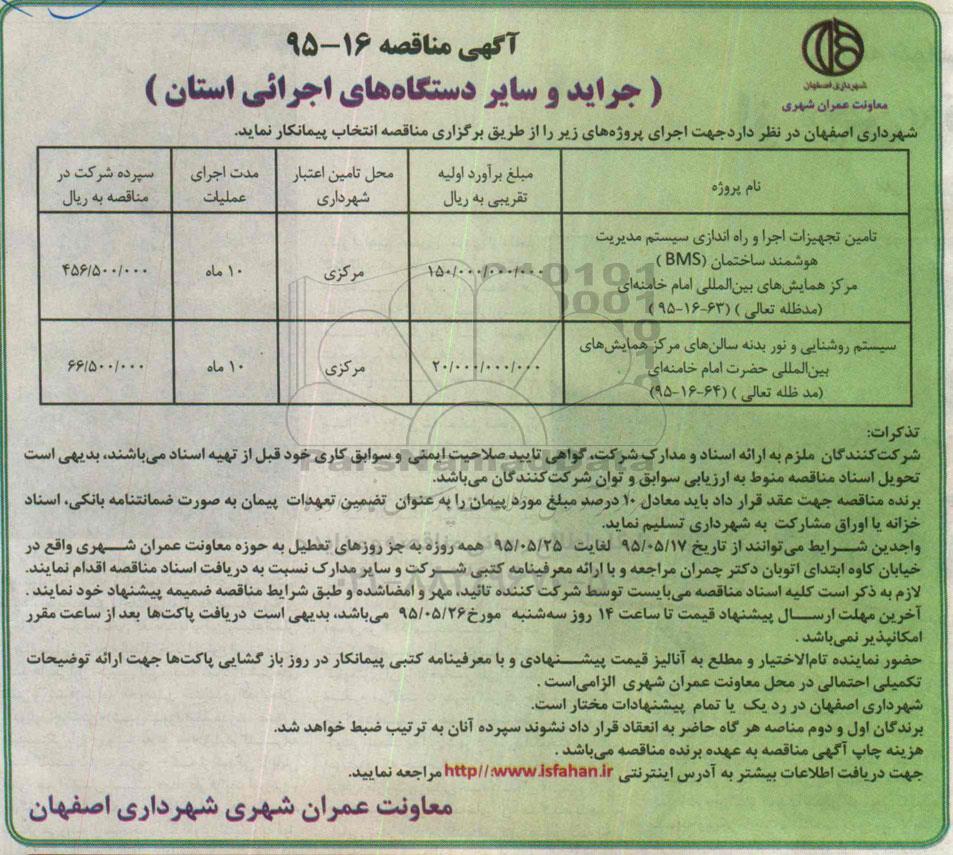 آگهی مناقصه ۱۶-۹۵
( جراید و سایر دستگاه‌های اجرائی استان )
شهرداری اصفهان
معاونت عمران شهری
شهرداری اصفهان در نظر داردجهت اجرای پروژه‌های زیر را از طریق برگزاری مناقصه انتخاب پیمانکار نماید.
نام پروژه
مبلغ برآورد اولیه
تقریبی به ریال
محل تامین اعتبار
شهرداری
مدت اجرای
عملیات
سپرده شرکت در
مناقصه به ریال
تامین تجهیزات اجرا و راه اندازی سیستم مدیریت
هوشمند ساختمان (BMS )
مرکز همایش‌های بین‌المللی امام خامنه‌ای
(مدظله تعالی ) (۶۳-۱۶-۹۵ )
۱۵۰/۰۰۰/۰۰۰/۰۰۰
مرکزی
۱۰ ماه
۴۵۶/۵۰۰/۰۰۰
سیستم روشنایی و نور بدنه سالن‌های مرکز همایش‌های
بین‌المللی حضرت امام خامنه‌ای
(مد ظله تعالی ) (۶۴-۱۶-۹۵)
۲۰/۰۰۰/۰۰۰/۰۰۰
مرکزی
۱۰ ماه
۶۶/۵۰۰/۰۰۰
تذکرات:
شرکت‌کنندگان ملزم به ارائه اسناد و مدارک شرکت، گواهی تایید صلاحیت ایمنی و سوابق کاری خود قبل از تهیه اسناد می‌باشند، بدیهی است
تحویل اسناد مناقصه منوط به ارزیابی سوابق و توان شرکت‌کنندگان می‌باشد.
برنده مناقصه جهت عقد قرار داد باید معادل ۱۰ درصد مبلغ مورد پیمان را به عنوان تضمین تعهدات پیمان به صورت ضمانتنامه بانکی، اسناد
خزانه یا اوراق مشارکت به شهرداری تسلیم نماید.
واجدین شرایط می‌توانند از تاریخ ۹۵/۰۵/۱۷ لغایت ۹۵/۰۵/۲۵ همه روزه به جز روزهای تعطیل به حوزه معاونت عمران شهری واقع در
خیابان کاوه ابتدای اتوبان دکتر چمران مراجعه و با ارائه معرفینامه کتبی شرکت و سایر مدارک نسبت به دریافت اسناد مناقصه اقدام نمایند.
لازم به ذکر است کلیه اسناد مناقصه می‌بایست توسط شرکت کننده تائید، مهر و امضاشده و طبق شرایط مناقصه ضمیمه پیشنهاد خود نمایند .
آخرین مهلت ارسال پیشنهاد قیمت تا ساعت ۱۴ روز سه‌شنبه مورخ ۹۵/۰۵/۲۶ می‌باشد، بدیهی است دریافت پاکت‌ها بعد از ساعت مقرر
امکانپذیر نمی‌باشد .
حضور نماینده تام‌الاختیار و مطلع به آنالیز قیمت پیشنهادی و با معرفینامه کتبی پیمانکار در روز باز گشایی پاکت‌ها جهت ارائه توضیحات
تکمیلی احتمالی در محل معاونت عمران شهری الزامی‌است .
شهرداری اصفهان در رد یک یا تمام پیشنهادات مختار است.
برندگان اول و دوم مناصه هر گاه حاضر به انعقاد قرار داد نشوند سپرده آنان به ترتیب ضبط خواهد شد.
هزینه چاپ آگهی مناقصه به عهده برنده مناقصه می‌باشد .
جهت دریافت اطلاعات بیشتر به آدرس اینترنتی http//:www.isfahan.ir مراجعه نمایید.
معاونت عمران شهری شهرداری اصفهان